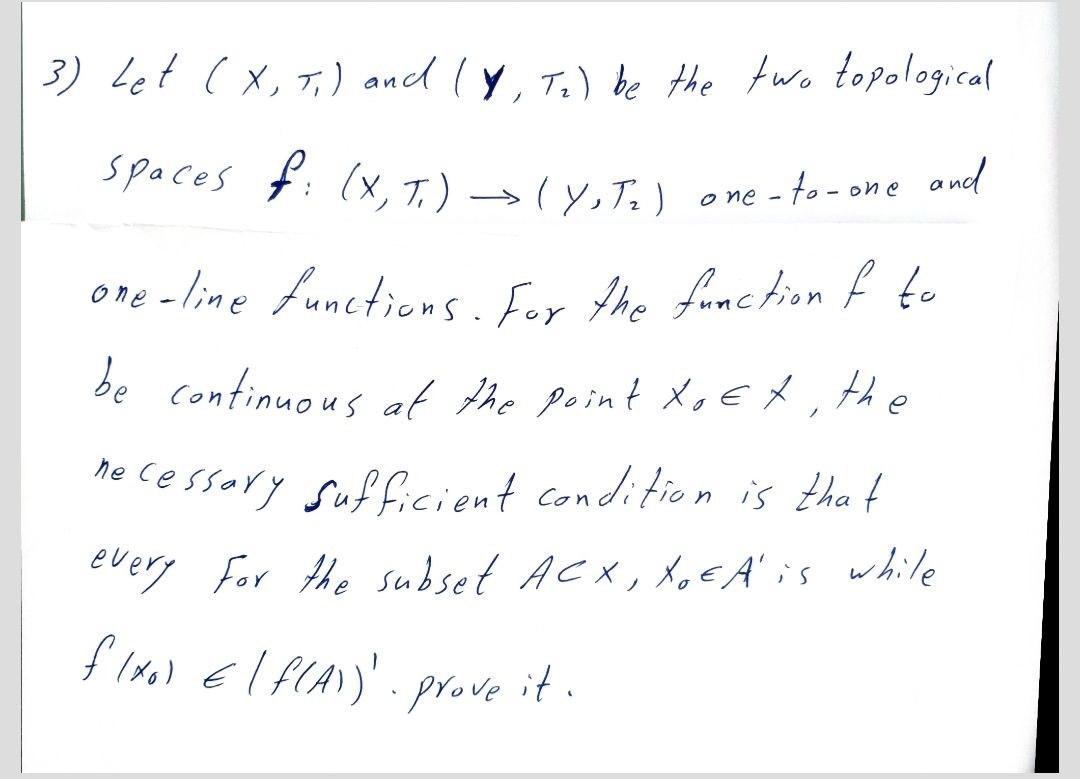 3) Let (X, T₁) and (Y, T₂) be the two topological
spaces f: (X, T₁) → (Y, T₂) one-to-one and
one-line functions. For the function f to
be continuous at the point x₀ ∈ X, the
necessary sufficient condition is that
every For the subset A⊂X, x₀∈A' is while
f(x₀) ∈ (f(A))'. prove it.